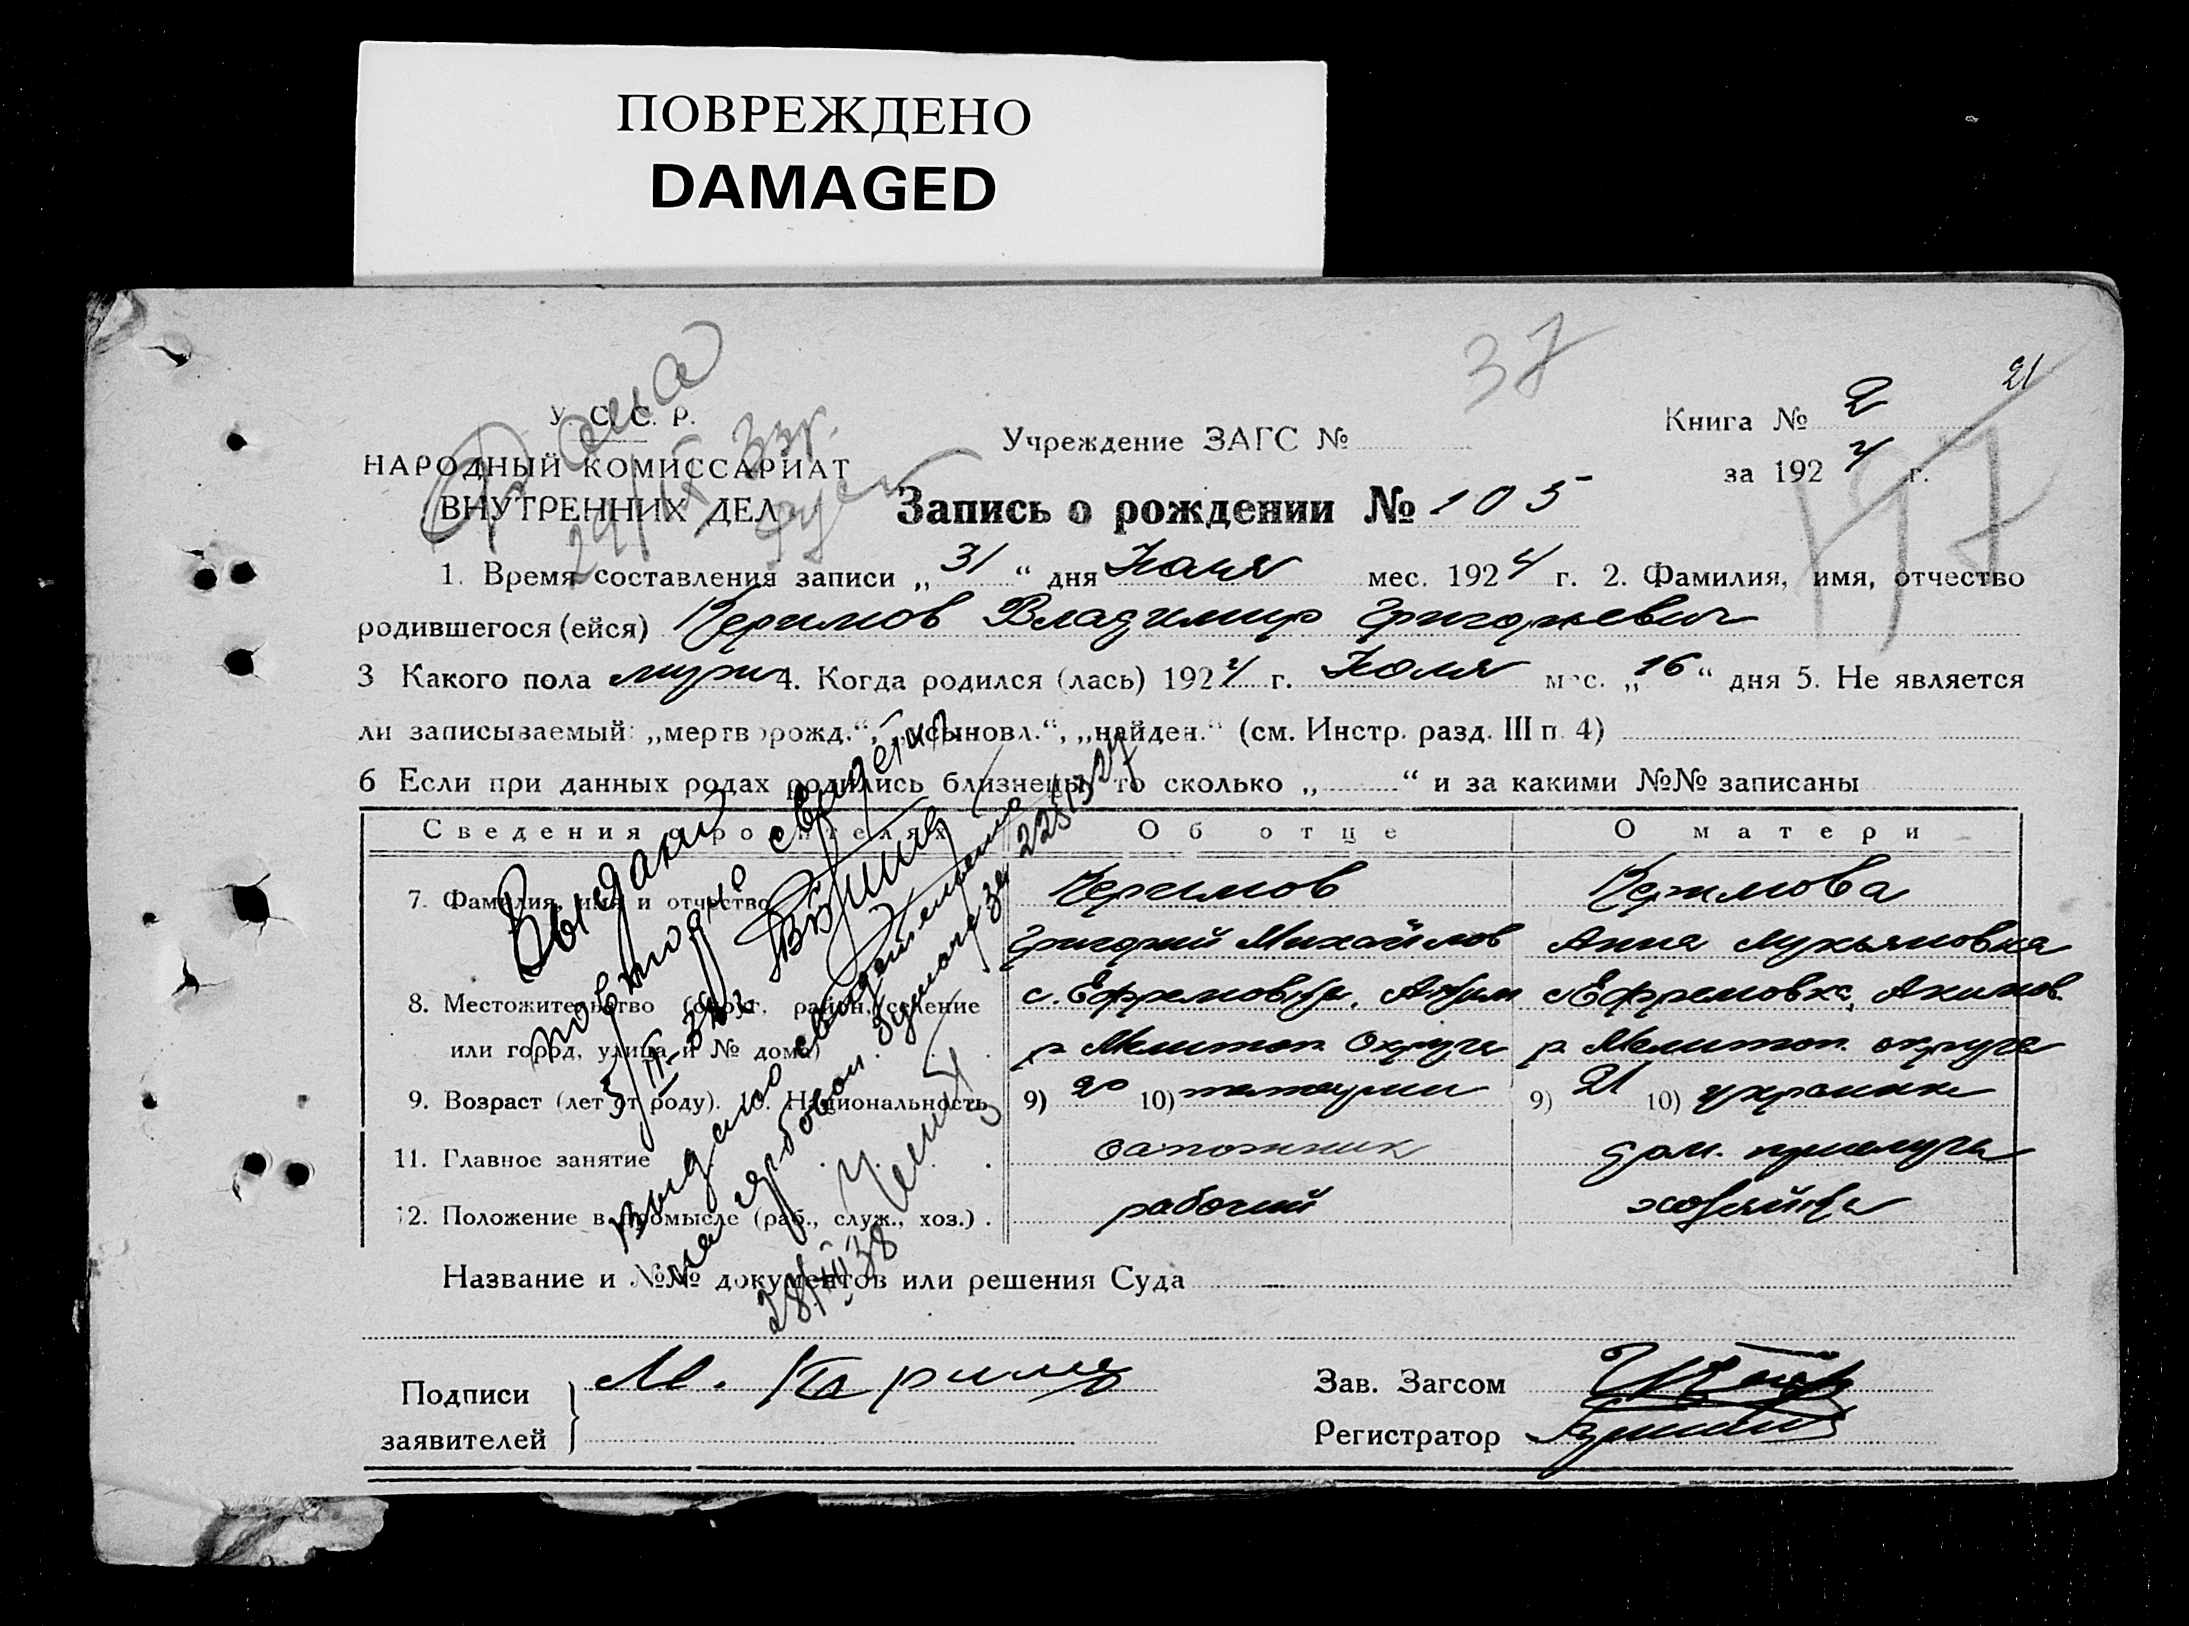 ПОВРЕЖДЕНО
DAMAGED
37
21
197
У. С. С. Р.
НАРОДНЫЙ КОМИССАРИАТ
ВНУТРЕННИХ ДЕЛ
Учреждение ЗАГС №
Книга № 2
за 192 4 г.
Запись о рождении № 105
1. Время составления записи „ 31 “ дня Июля мес. 192 4 г. 2. Фамилия, имя, отчество
родившегося (ейся) Керимов Владимир Григорьевич
3 Какого пола муж 4. Когда родился (лась) 192 4 г. Июля мес. „ 16 “ дня 5. Не является
ли записываемый: „мертворожд.“, „усыновл.“, „найден.“ (см. Инстр. разд. III п. 4)
6 Если при данных родах родились близнецы, то сколько „ “ и за какими №№ записаны
Сведения о родителях Об отце О матери
7. Фамилия, имя и отчество Керимов Керимова
Григорий Михайлов Анна Лукьяновна
8. Местожительство (округ, район, селение с. Ефремовка, Аким с Ефремовка, Акимов.
или город, улица и № дома) р. Мелитоп. Округа р. Мелитоп. округа
9. Возраст (лет от роду). 10. Национальность 9) 20 10) 9) 21 10) украинка
11. Главное занятие сапожник дом.
12. Положение в промысле (раб., служ., хоз.) . рабочий хозяйка
Название и №№ документов или решения Суда
Подписи
заявителей
М. Карима
Зав. Загсом
Регистратор
Выдано
повторно
выдано свидетельство